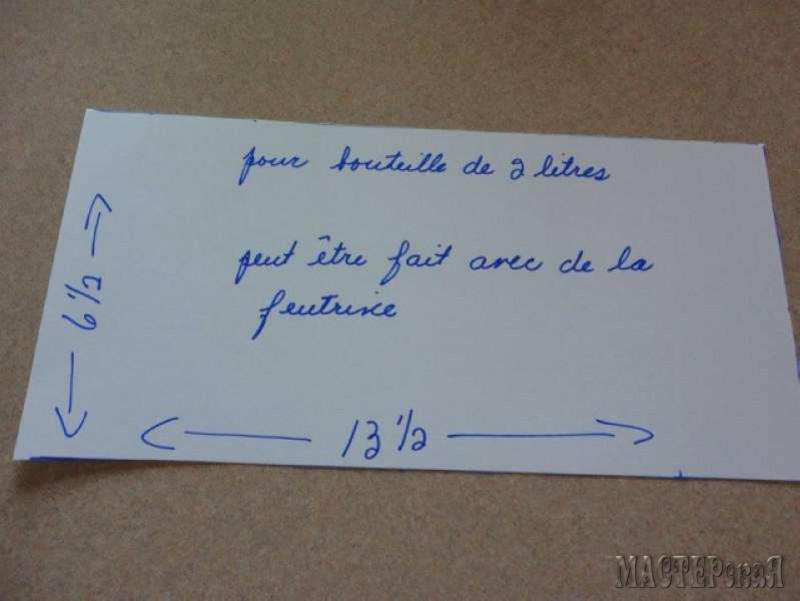 pour bouteille de 2 litres
peut être fait avec de la
feutrine
6 1/2
13 1/2
МАСТЕРскаЯ